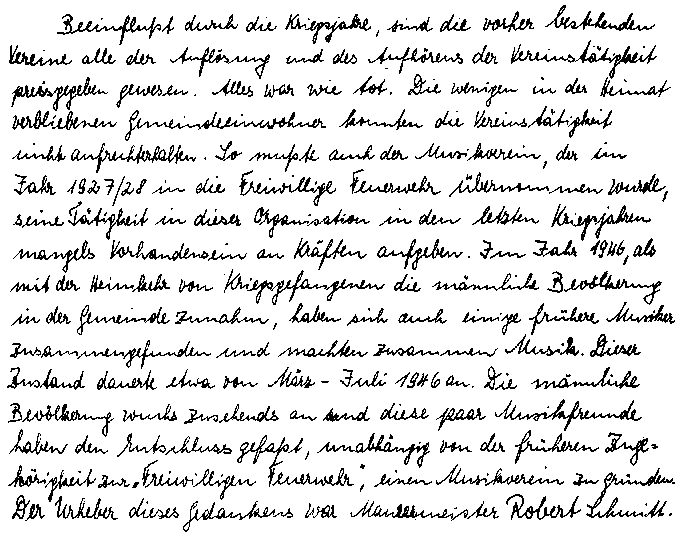 Beeinflußt durch die Kriegsjahre, sind die vorher bestehenden
Vereine alle der Auflösung und des Aufhörens der Vereinstätigkeit
preisgegeben gewesen. Alles war wie tot. Die wenigen in der Heimat
verbliebenen Gemeindeeinwohner konnten die Vereinstätigkeit
nicht aufrechterhalten. So mußte auch der Musikverein, der im
Jahr 1927/28 in die Freiwillige Feuerwehr übernommen wurde,
seine Tätigkeit in dieser Organisation in den letzten Kriegsjahren
mangels Vorhandensein an Kräften aufgeben. Im Jahr 1946, als
mit der Heimkehr von Kriegsgefangenen die männliche Bevölkerung
in der Gemeinde zunahm, haben sich auch einige frühere Musiker
zusammengefunden und machten zusammen Musik. Dieser
Zustand dauerte etwa von März - Juli 1946 an. Die männliche
Bevölkerung wuchs zusehends an und diese paar Musikfreunde
haben den Entschluss gefaßt, unabhängig von der früheren Zuge=
hörigkeit zur „Freiwilligen Feuerwehr", einen Musikverein zu gründen.
Der Urheber dieses Gedankens war Maurermeister Robert Schmitt.